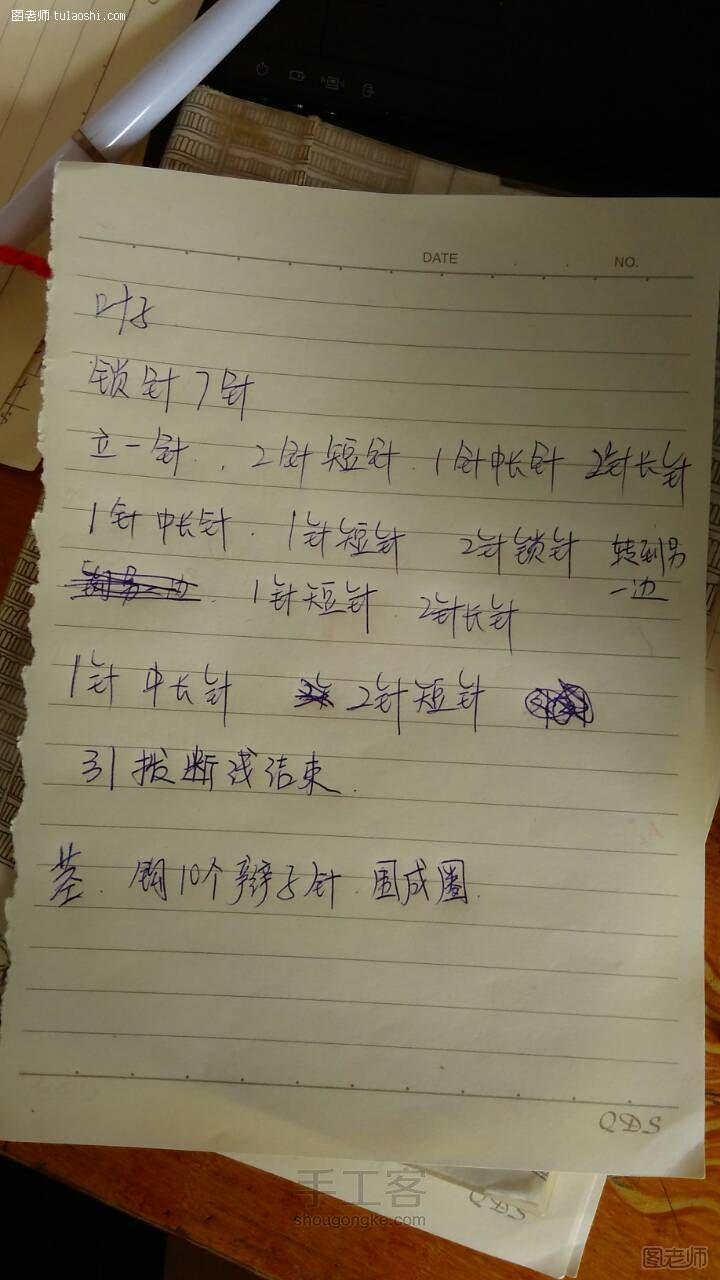 图老师 tulaoshi.com
DATE NO.
叶子
锁针7针
立一针、2针短针、1针中长针 2针长针
1针中长针、1针短针 2针锁针 转到另一边
1针短针、2针长针
1针中长针 2针短针
引拔断线结束.
茎、钩10个辫子针、围成圈.
QDS
手工客
QDS
shougongke.com
图老师